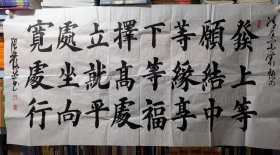 發上等
願結中
等緣享
下等福
擇高處
立就平
處坐向
寬處行